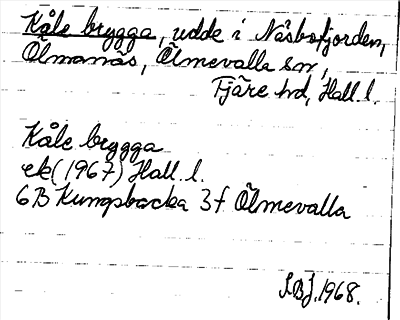 Kåle brygga, udde i Näsbofjorden,
Ölmanäs, Ölmevalla sn,
Fjäre hd, Hall. l.
Kåle brygga
ek (1967) Hall. l.
6B Kungsbacka 3f Ölmevalla
1968.